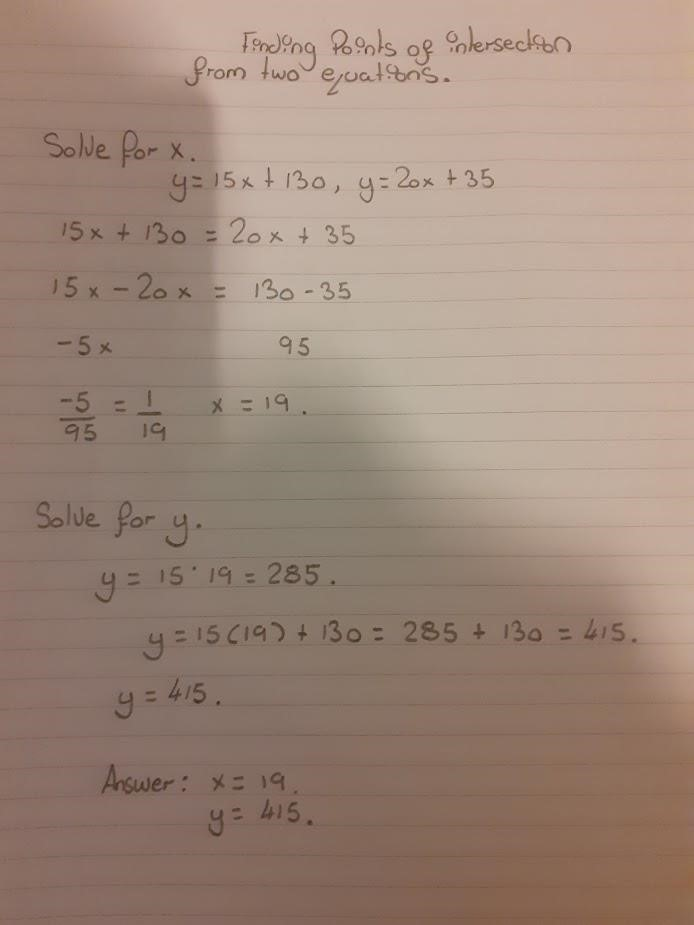 Finding Points of intersection
from two equations.
Solve for x.
y = 15x + 130, y = 20x + 35
15x + 130 = 20x + 35
15x - 20x = 130 - 35
-5x 95
-5/95 = 1/19 x = 19.
Solve for y.
y = 15 · 19 = 285.
y = 15(19) + 130 = 285 + 130 = 415.
y = 415.
Answer: x = 19.
y = 415.